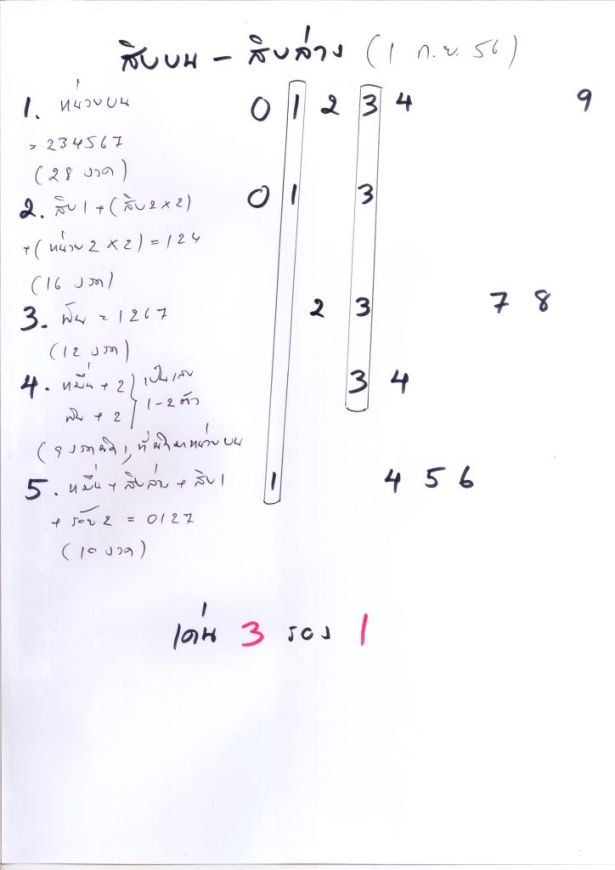 สิบบน - สิบล่าง (1 ก.ย. 56)
1. หน่วยบน 0 1 2 3 4 9
= 234567
(28 งวด)
2. สิบ1 + (สิบ2 x 2) 0 1 3
+ (หน่วย2 x 2) = 124
(16 งวด)
3. พัน = 1267 2 3 7 8
(12 งวด)
4. หมื่น + 2 } เป็นเลข 3 4
พัน + 2 } 1-2 ตัว
(9 งวด
5. หมื่น + สิบล่าง + สิบ1 1 4 5 6
+ ร้อย2 = 0127
(10 งวด)
เด่น 3 รอง 1